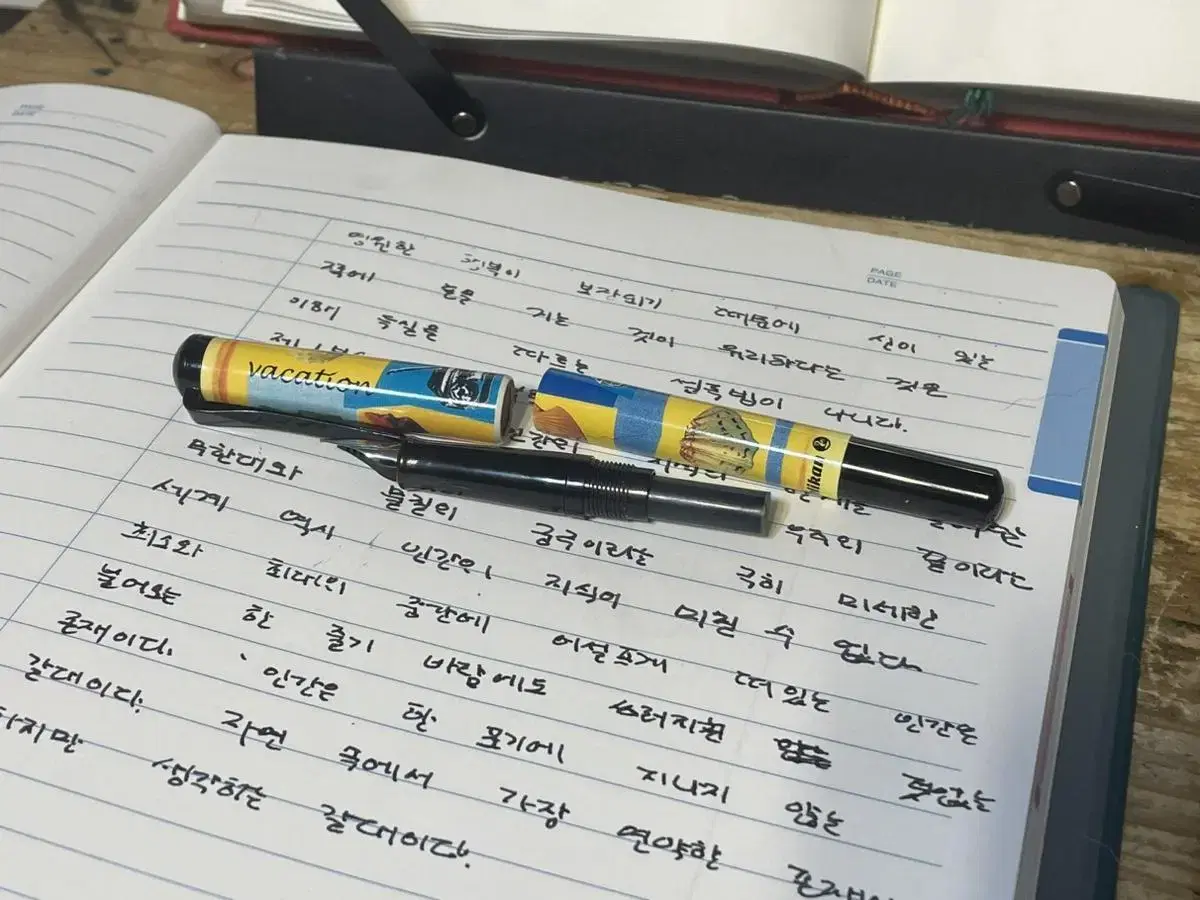 PAGE
DATE
PAGE
DATE
영원한 행복이 보장되기 때문에 신이 있는
쪽에 돈을 거는 것이 유리하다는 것은
이해 득실을 따르는 설득법이 아니다.
vacation
인간의
무한대와 불길의 궁극이라는 극히 미세한
세계 역시 인간의 지식이 미칠 수 없다.
우주의 끝이라는
최소와 최대의 중간에 어설프게 떠 있는 인간은
불어오는 한 줄기 바람에도 쓰러지현 덧없는
존재이다. 인간은 한 포기에 지나지 않는
갈대이다. 자연 속에서 가장 연약한
하지만 생각하는 갈대이다.